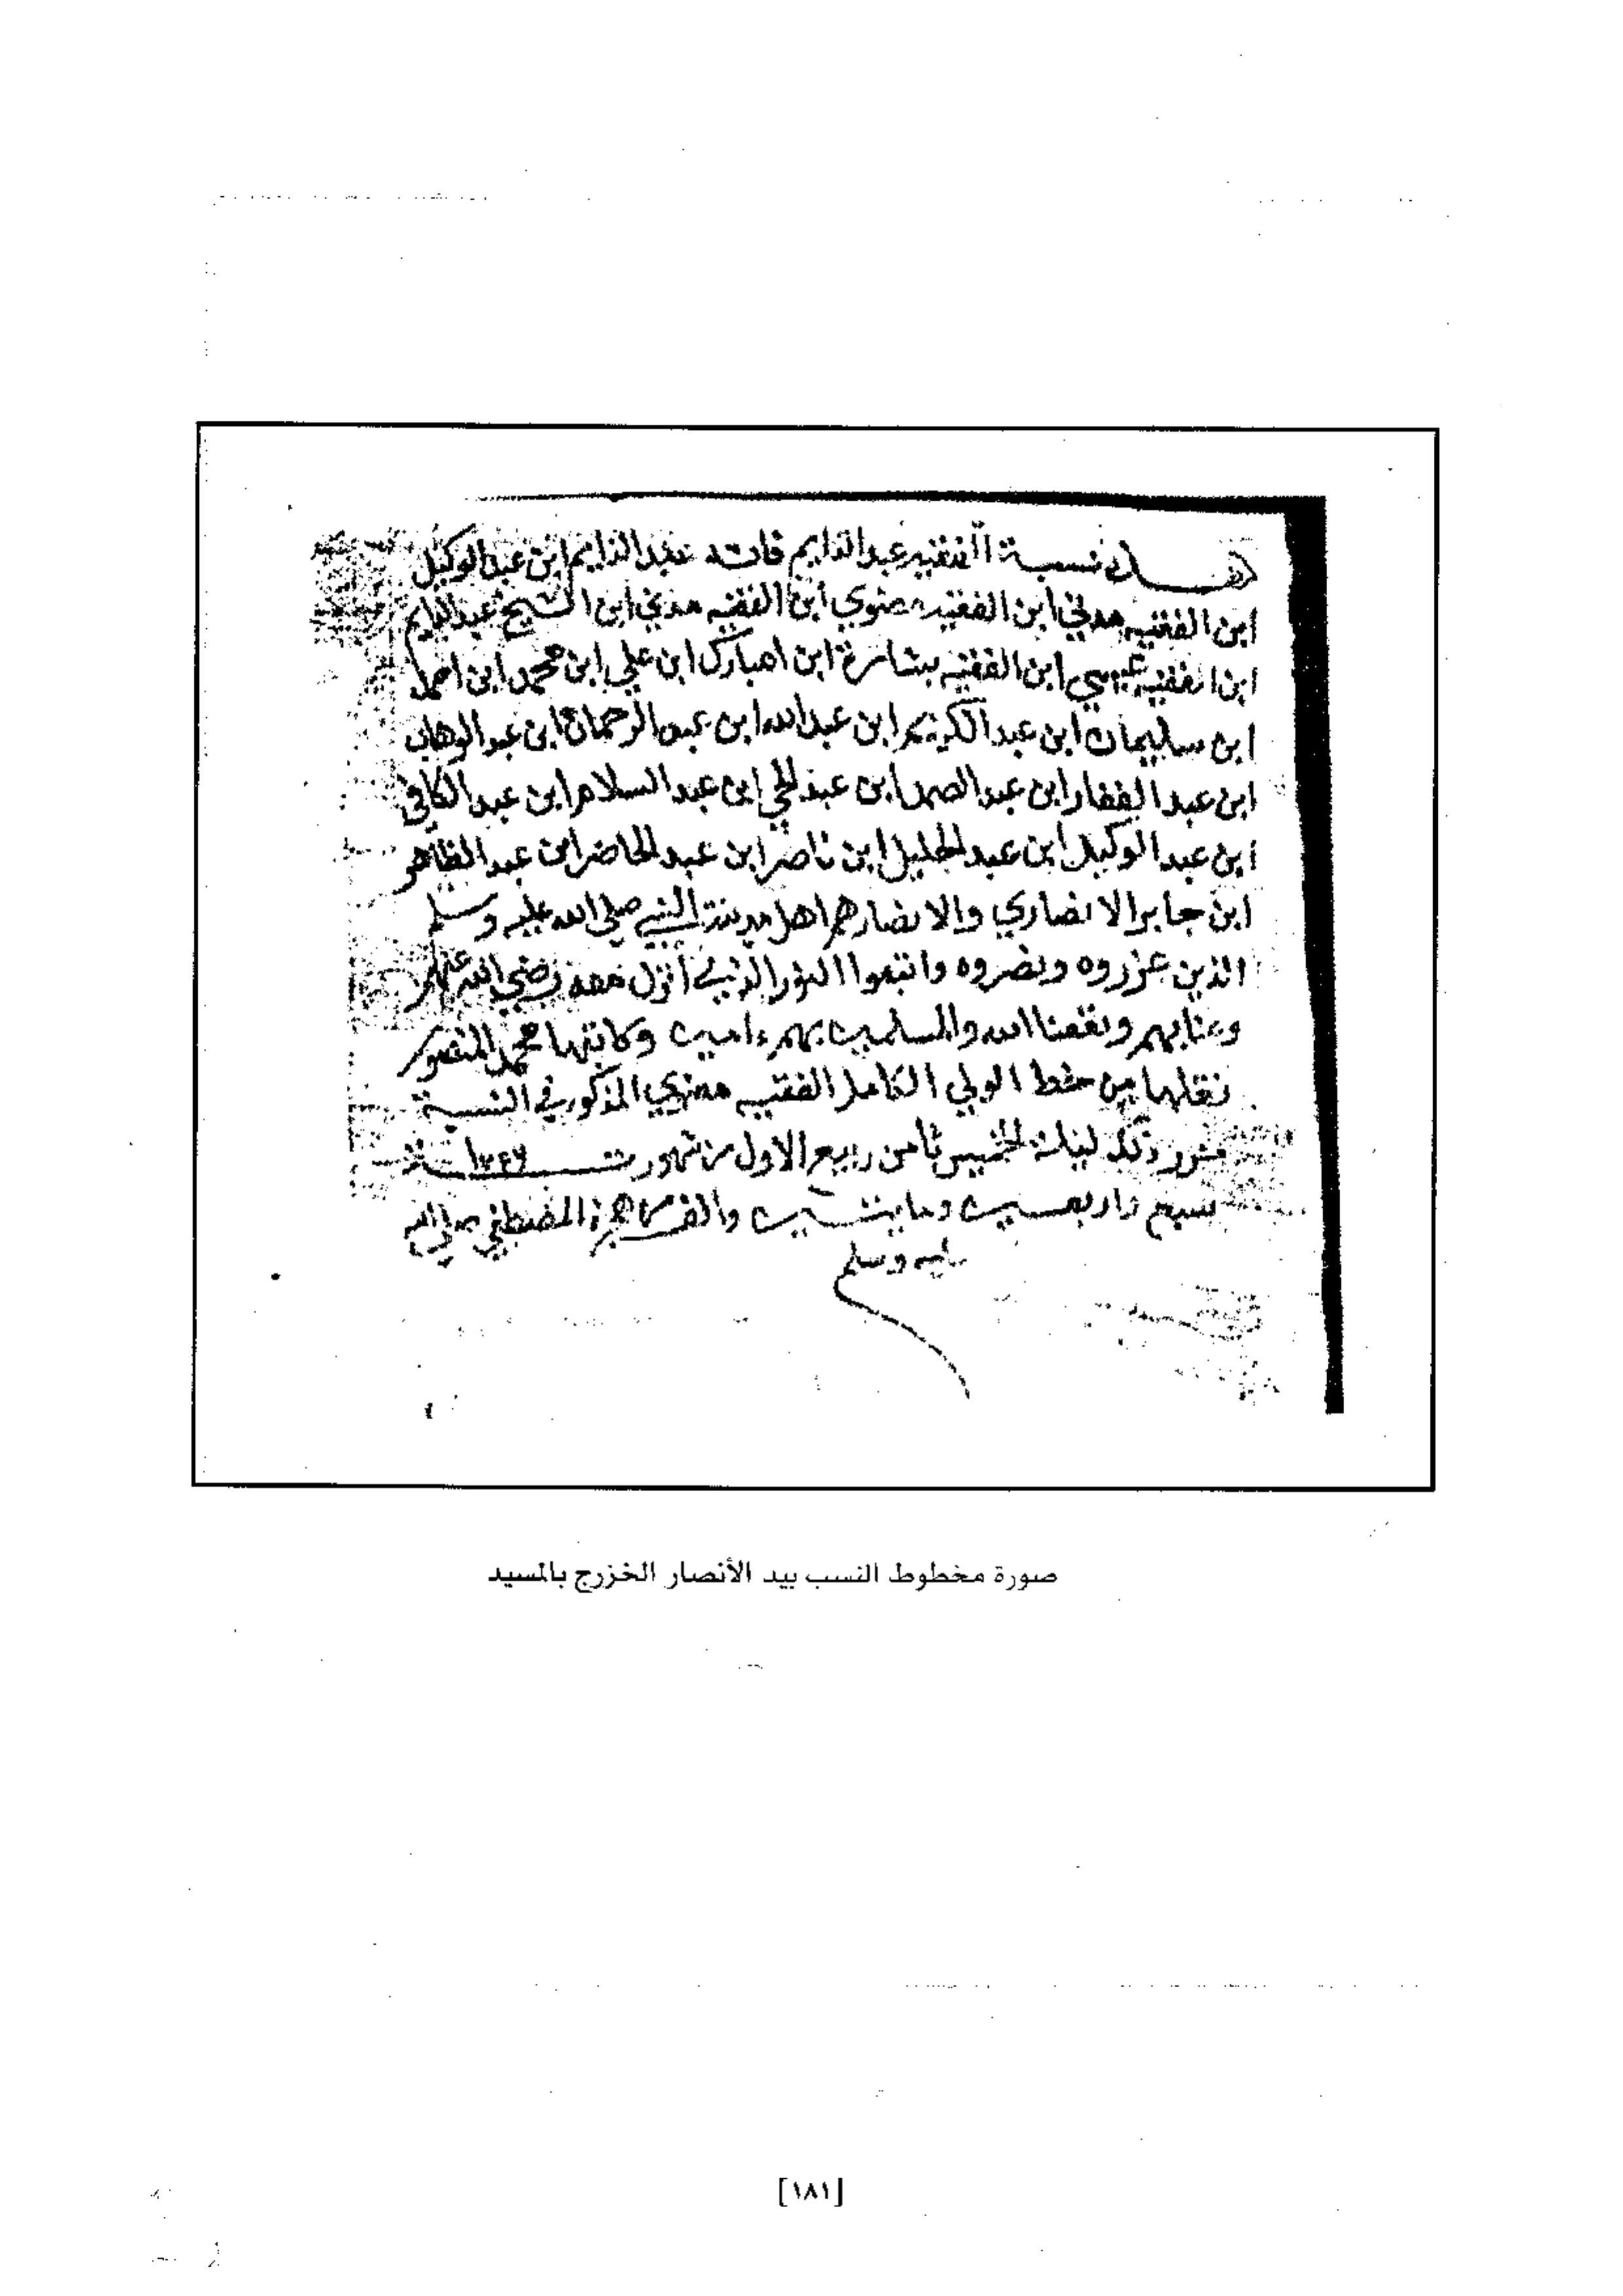 هذه نسبة الفقيه عبدالدايم فانه عبدالدايم ابن عبدالوكيل
ابن الفقيه مدني ابن الفقيه مضوي ابن الفقيه مدني ابن الشيخ عبدالدايم
ابن الفقيه عيسي ابن الفقيه بشارة ابن امبارك ابن علي ابن محمد ابن احمد
ابن سليمان ابن عبدالكريم ابن عبدالله ابن عبدالرحمان ابن عبدالوهاب
ابن عبدالغفار ابن عبدالصمد ابن عبدالحي ابن عبدالسلام ابن عبدالكافي
ابن عبدالوكيل ابن عبدالجليل ابن ناصر ابن عبدالحاضر ابن عبدالظاهر
ابن جابر الانصاري والانصارهم اهل مدينة النبي صلي الله عليه وسلم
الذين عزروه ونصروه واتبعوا النور الذي أنزل معه رضي الله عنهم
وعنا بهم ونفعنا الله والمسلمين بهم ءامين وكاتبها محمد المنصور
نقلها من خط الولي الكامل الفقيه مضوي المذكور في النسبة
ذلك ليلة الخميس ثامن ربيع الاول من شهور سنة
سبع واربعين ومايتين والف من هجرة المصطفي صلي الله
عليه وسلم
صورة مخطوط النسب بيد الأنصار الخزرج بالمسيد
[١٨١]